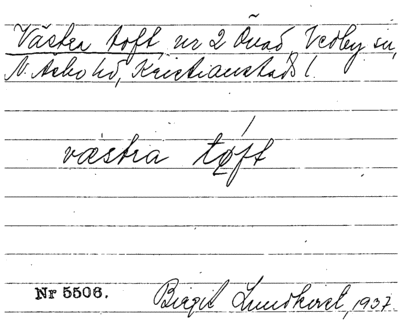 Västra toft, nr 2 Övad, Vedby sn,
N. Åsbo hd, Kristianstads l.
västra tøft
Nr 5506.
Birgit Lundkvist, 1937